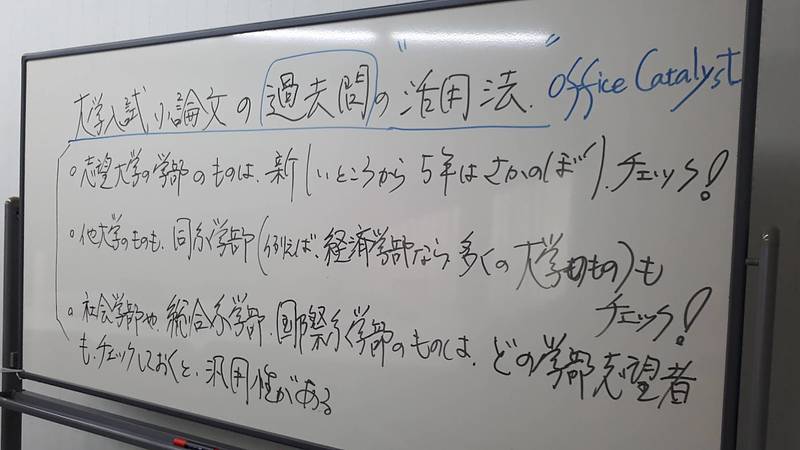 大学入試小論文の過去問の"活用法" Office Catalyst
○志望大学の学部のものは、新しいところから5年はさかのぼり、チェック!
○他大学のものも、同系学部(例えば、経済学部なら、多くの大学のもの)も
チェック!
○社会学部や、総合系学部、国際系学部のものは、どの学部志望者
も、チェックしておくと、汎用性がある